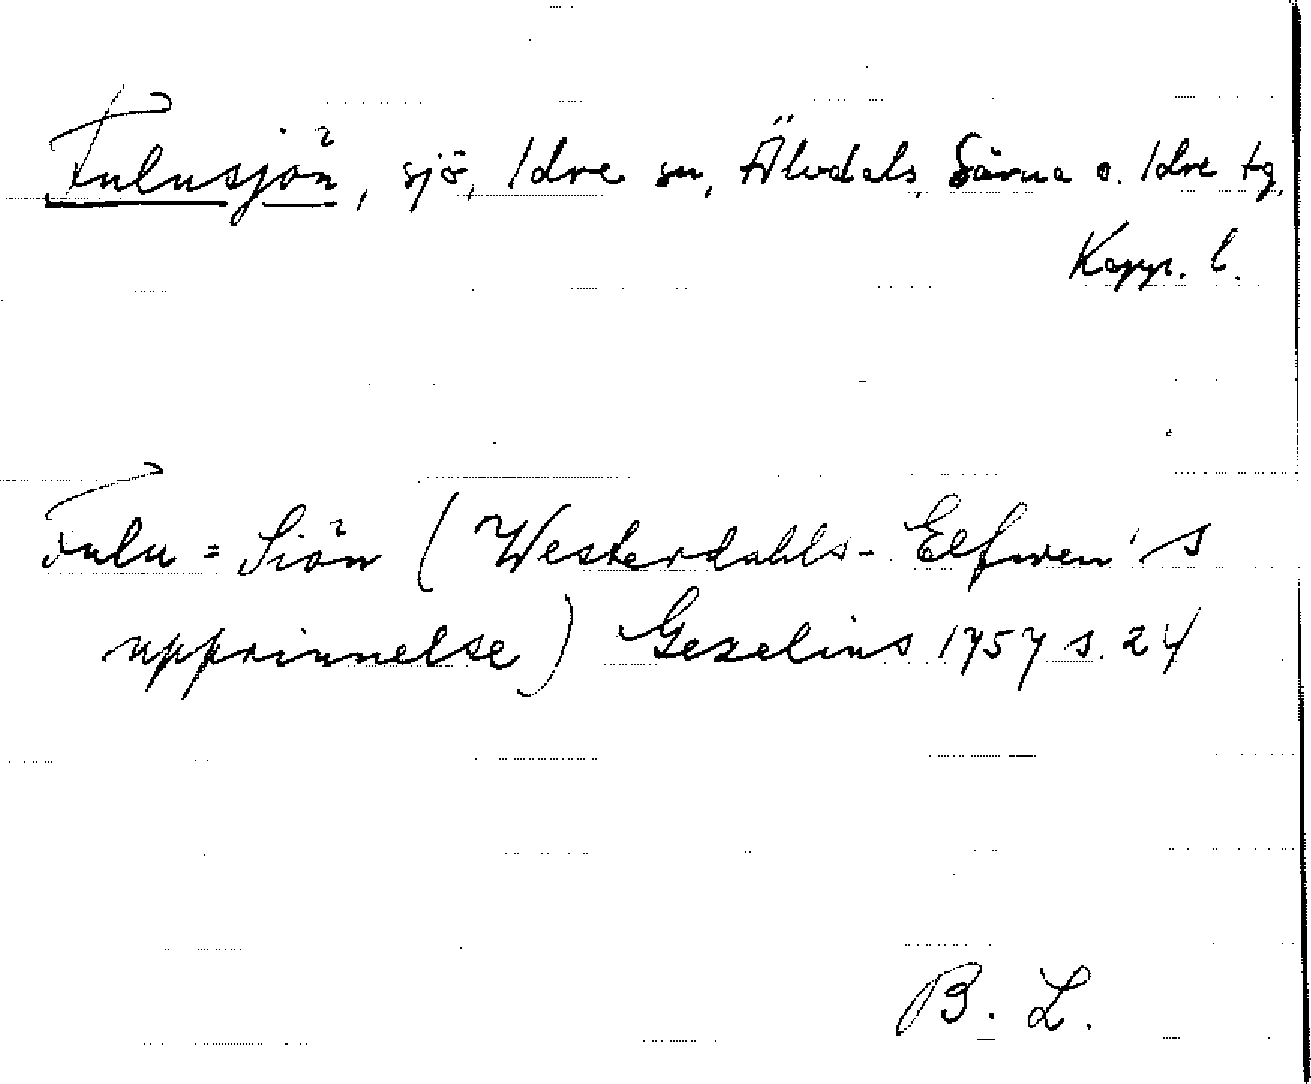 Fulusjön, sjö, Idre sn, Älvdals, Särna o. Idre tg,
Kopp. l.
Fulu = Siön (Westerdahls- Elfwen's
upprinnelse) Gezelius 1757 s. 24
B. L.